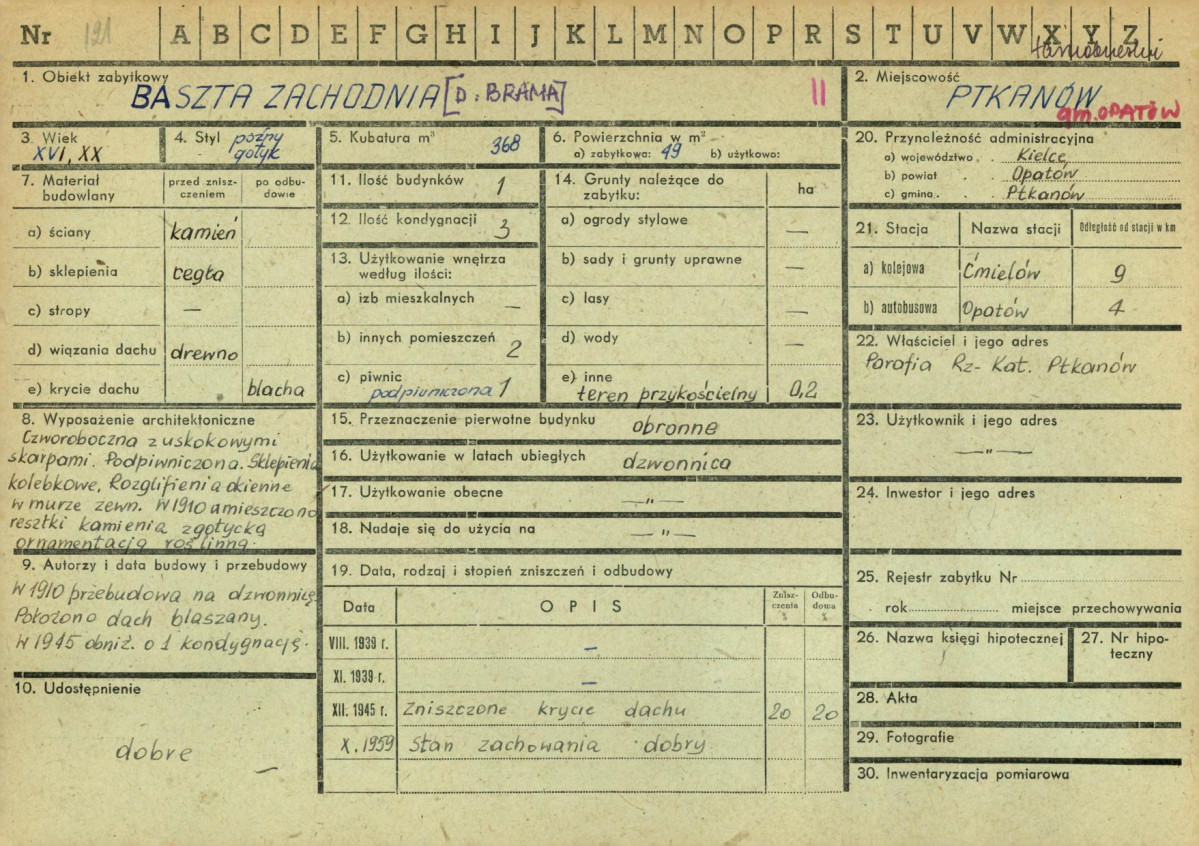 Nr 191 A B C D E F G H I J K L M N O P R S T U V W X Y Z
tarnobrzeski
1. Obiekt zabytkowy
BASZTA ZACHODNIA [D. BRAMA] II
2. Miejscowość
PTKANÓW
gm. OPATÓW
3. Wiek
XVI, XX
4. Styl późny
gotyk
5. Kubatura m³ 368
6. Powierzchnia w m²
a) zabytkowa: 49 b) użytkowo:
7. Materiał budowlany
przed zniszczeniem
po odbudowie
a) ściany kamień
b) sklepienia cegła
c) stropy —
d) wiązania dachu drewno
e) krycie dachu blacha
8. Wyposażenie architektoniczne
Czworoboczna z uskokowymi
skarpami. Podpiwniczona. Sklepienia
kolebkowe. Rozglifienia okienne
w murze zewn. W 1910 umieszczono
resztki kamienia z gotycką
ornamentacją roślinną.
9. Autorzy i data budowy i przebudowy
W 1910 przebudowa na dzwonnicę
Położono dach blaszany.
W 1945 obniż. o 1 kondygnację.
10. Udostępnienie
dobre
—
11. Ilość budynków 1
12. Ilość kondygnacji 3
13. Użytkowanie wnętrza
według ilości:
a) izb mieszkalnych —
b) innych pomieszczeń 2
c) piwnic
podpiwniczona 1
14. Grunty należące do
zabytku: ha
a) ogrody stylowe —
b) sady i grunty uprawne —
c) lasy
d) wody —
e) inne
teren przykościelny 0,2
15. Przeznaczenie pierwotne budynku obronne
16. Użytkowanie w latach ubiegłych dzwonnica
17. Użytkowanie obecne —„—
18. Nadaje się do użycia na —„—
19. Data, rodzaj i stopień zniszczeń i odbudowy
Data OPIS Zniszczenia % Odbudowa %
VIII. 1939 r. —
XI. 1939 r. —
XII. 1945 r. Zniszczone krycie dachu 20 20
X. 1959 Stan zachowania dobry
20. Przynależność administracyjna
a) województwo . Kielce
b) powiat . . Opatów
c) gmina . . Ptkanów
21. Stacja Nazwa stacji Odległość od stacji w km
a) kolejowa Ćmielów 9
b) autobusowa Opatów 4
22. Właściciel i jego adres
Parafia Rz-Kat. Ptkanów
23. Użytkownik i jego adres
—„—
24. Inwestor i jego adres
25. Rejestr zabytku Nr
rok miejsce przechowywania
26. Nazwa księgi hipotecznej
27. Nr hipoteczny
28. Akta
29. Fotografie
30. Inwentaryzacja pomiarowa